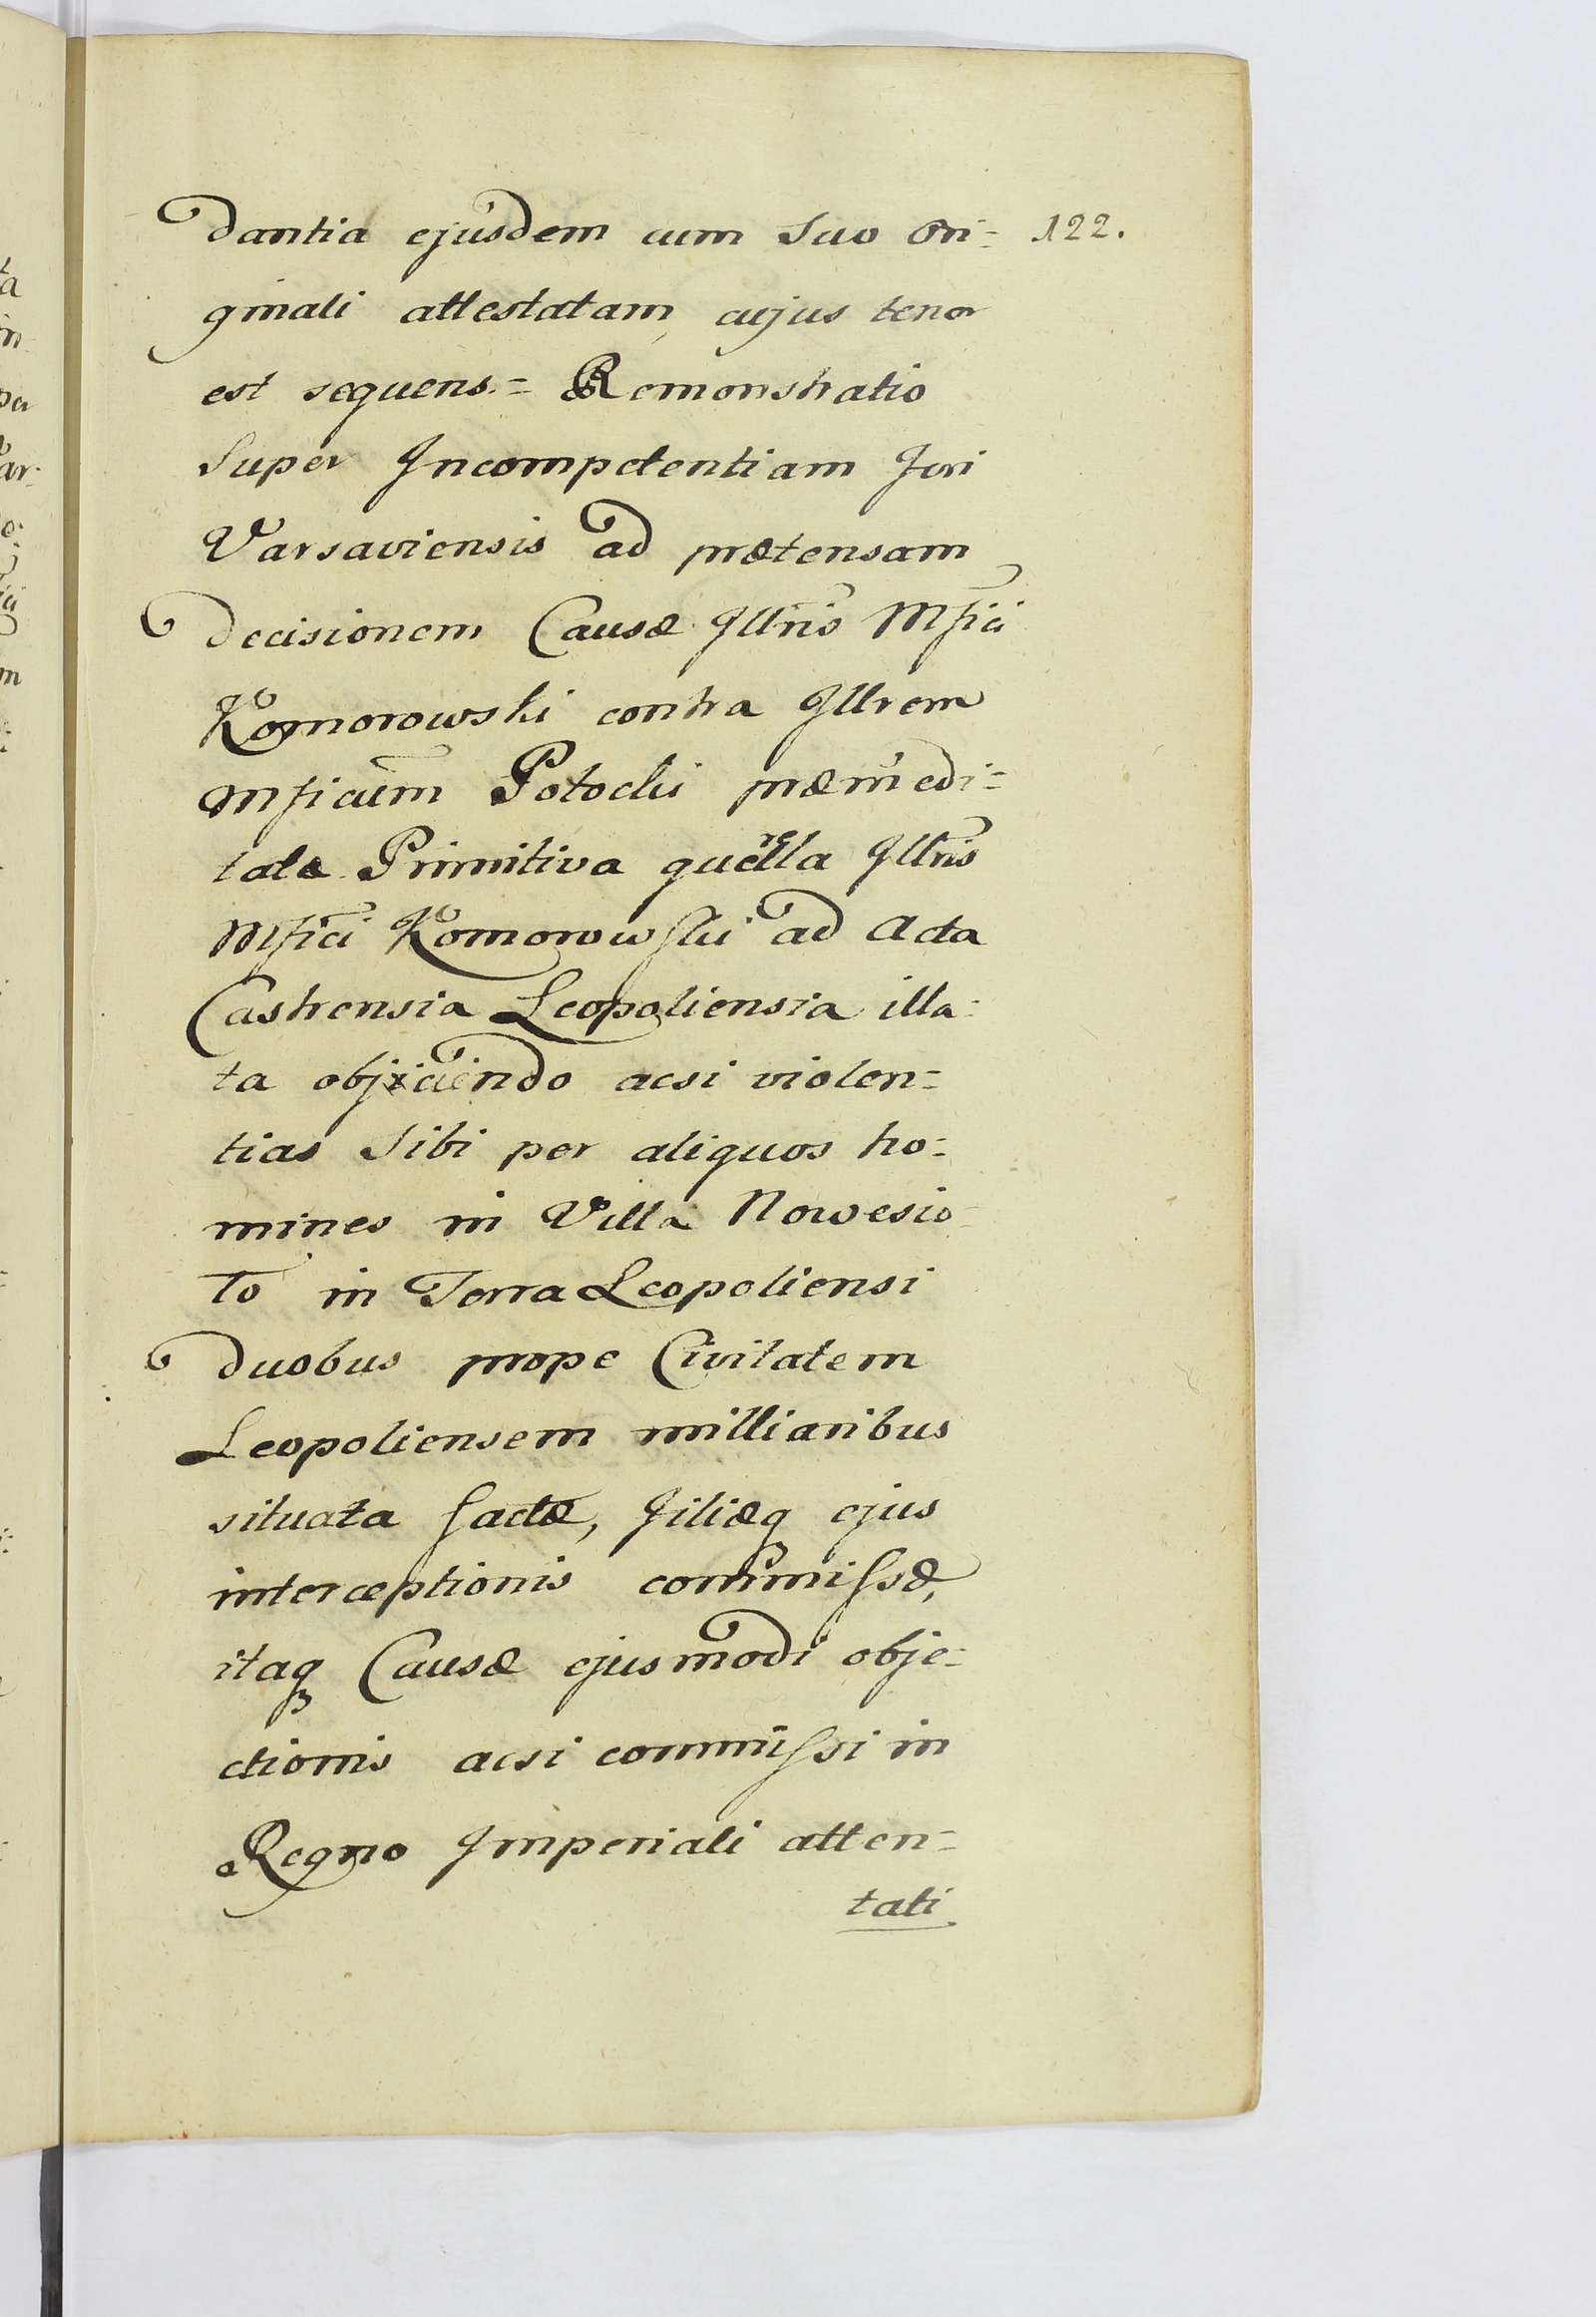 dantia ejusdem cum suo Ori= 122.
ginali attestatam, cujus tenor
est sequens.= Remonstratio
Super Incompetentiam Fori
Varsaviensis ad prætensam
Decisionem Causæ Illris Mfici
Komorowski contra Illrem
Mficum Potocki præmedi=
tatæ Primitiva querella Illris
Mfici Komorowski ad Acta
Castrensia Leopoliensia illa=
ta objiciendo acsi violen=
tias Sibi per aliquos ho=
mines in Villa Nowesio=
to in Terra Leopoliensi
duobus prope Civitatem
Leopoliensem milliaribus
situata factæ, filiæq ejus
interceptionis commissæ,
itaq Causæ ejusmodi obje=
ctionis acsi commissi in
Regno Imperiali atten=
tati